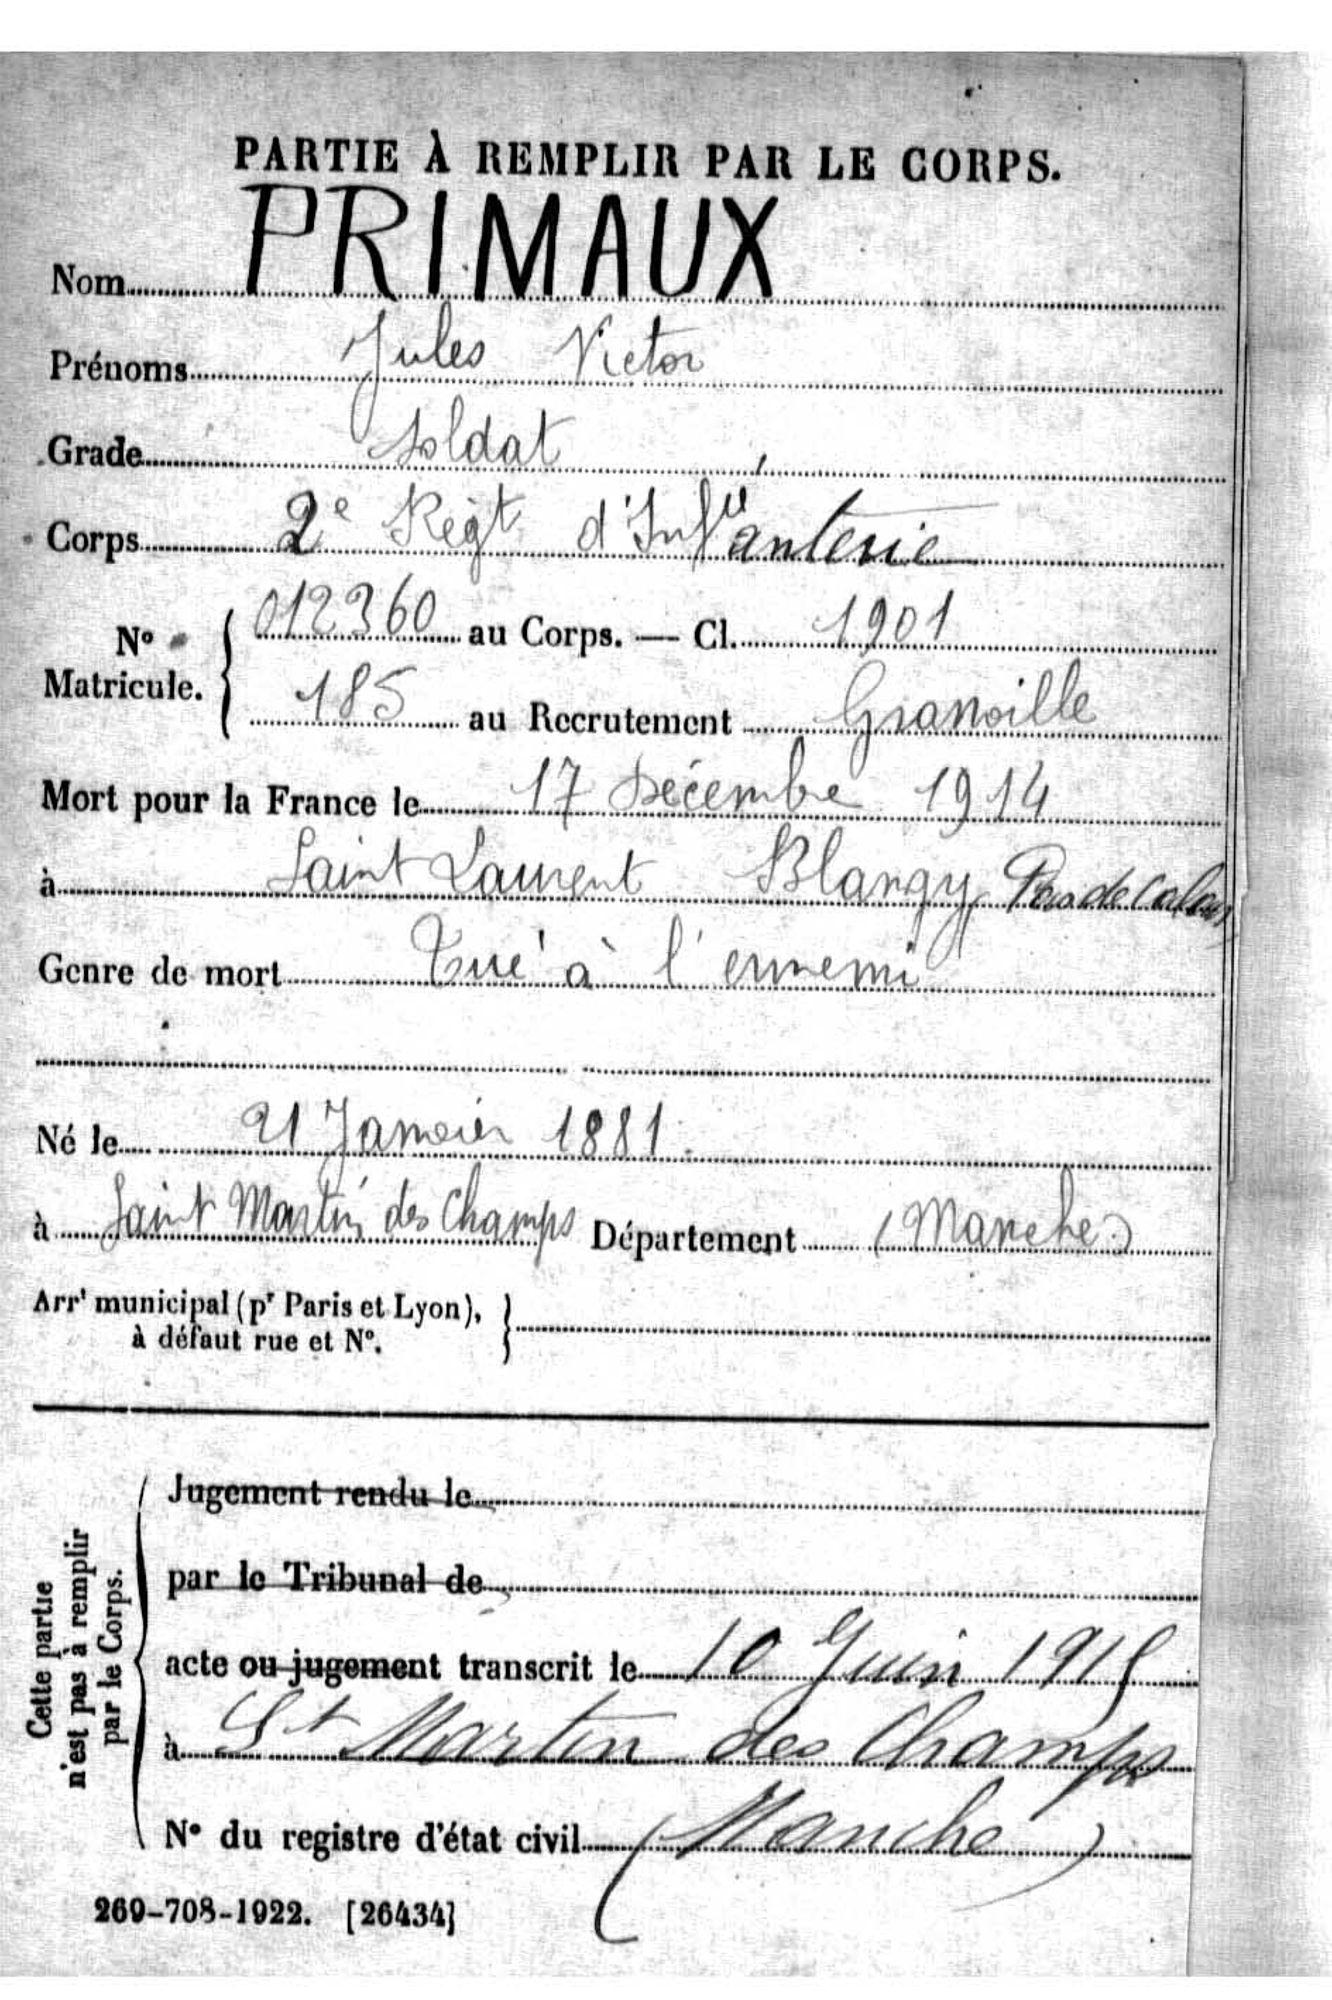 PARTIE À REMPLIR PAR LE CORPS.
Nom PRIMAUX
Prénoms Jules Victor
Grade Soldat
Corps 2e Régt d'Infanterie
No Matricule. { 012360 au Corps. — Cl. 1901
185 au Recrutement Granville
Mort pour la France le 17 Décembre 1914
à Saint Laurent Blangy Pas de Calais
Genre de mort Tué à l'ennemi
Né le 21 Janvier 1881
à Saint Martin des Champs Département (Manche)
Arrt municipal (pr Paris et Lyon), }
à défaut rue et No.
Cette partie n'est pas à remplir par le Corps.
Jugement rendu le
par le Tribunal de
acte ou jugement transcrit le 10 Juin 1915
à St Martin des Champs
No du registre d'état civil (Manche)
269-708-1922. [26434]